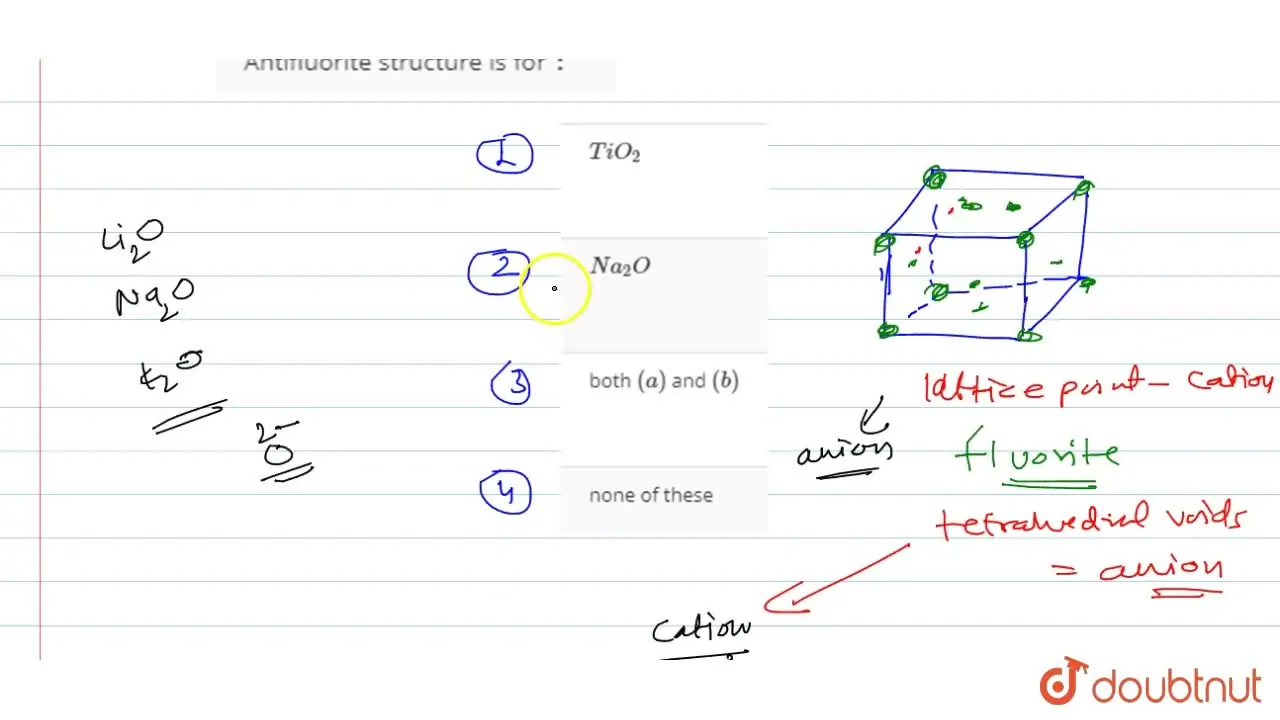 Antifluorite structure is for :
1
TiO2
Li2O
2
Na2O
Na2O
3
both (a) and (b)
K2O
lattice point - Cation
anion
fluorite
2-
O
4
none of these
tetrahedral voids
= anion
Cation
doubtnut